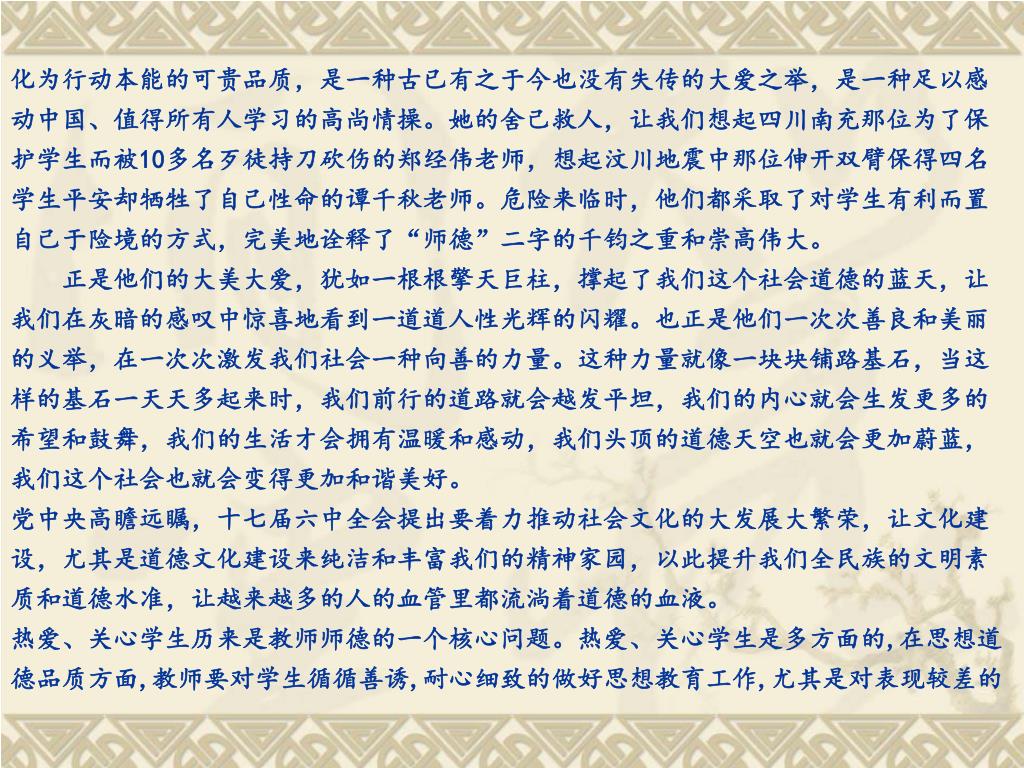 化为行动本能的可贵品质，是一种古已有之于今也没有失传的大爱之举，是一种足以感
动中国、值得所有人学习的高尚情操。她的舍己救人，让我们想起四川南充那位为了保
护学生而被10多名歹徒持刀砍伤的郑经伟老师，想起汶川地震中那位伸开双臂保得四名
学生平安却牺牲了自己性命的谭千秋老师。危险来临时，他们都采取了对学生有利而置
自己于险境的方式，完美地诠释了“师德”二字的千钧之重和崇高伟大。
正是他们的大美大爱，犹如一根根擎天巨柱，撑起了我们这个社会道德的蓝天，让
我们在灰暗的感叹中惊喜地看到一道道人性光辉的闪耀。也正是他们一次次善良和美丽
的义举，在一次次激发我们社会一种向善的力量。这种力量就像一块块铺路基石，当这
样的基石一天天多起来时，我们前行的道路就会越发平坦，我们的内心就会生发更多的
希望和鼓舞，我们的生活才会拥有温暖和感动，我们头顶的道德天空也就会更加蔚蓝，
我们这个社会也就会变得更加和谐美好。
党中央高瞻远瞩，十七届六中全会提出要着力推动社会文化的大发展大繁荣，让文化建
设，尤其是道德文化建设来纯洁和丰富我们的精神家园，以此提升我们全民族的文明素
质和道德水准，让越来越多的人的血管里都流淌着道德的血液。
热爱、关心学生历来是教师师德的一个核心问题。热爱、关心学生是多方面的,在思想道
德品质方面,教师要对学生循循善诱,耐心细致的做好思想教育工作,尤其是对表现较差的